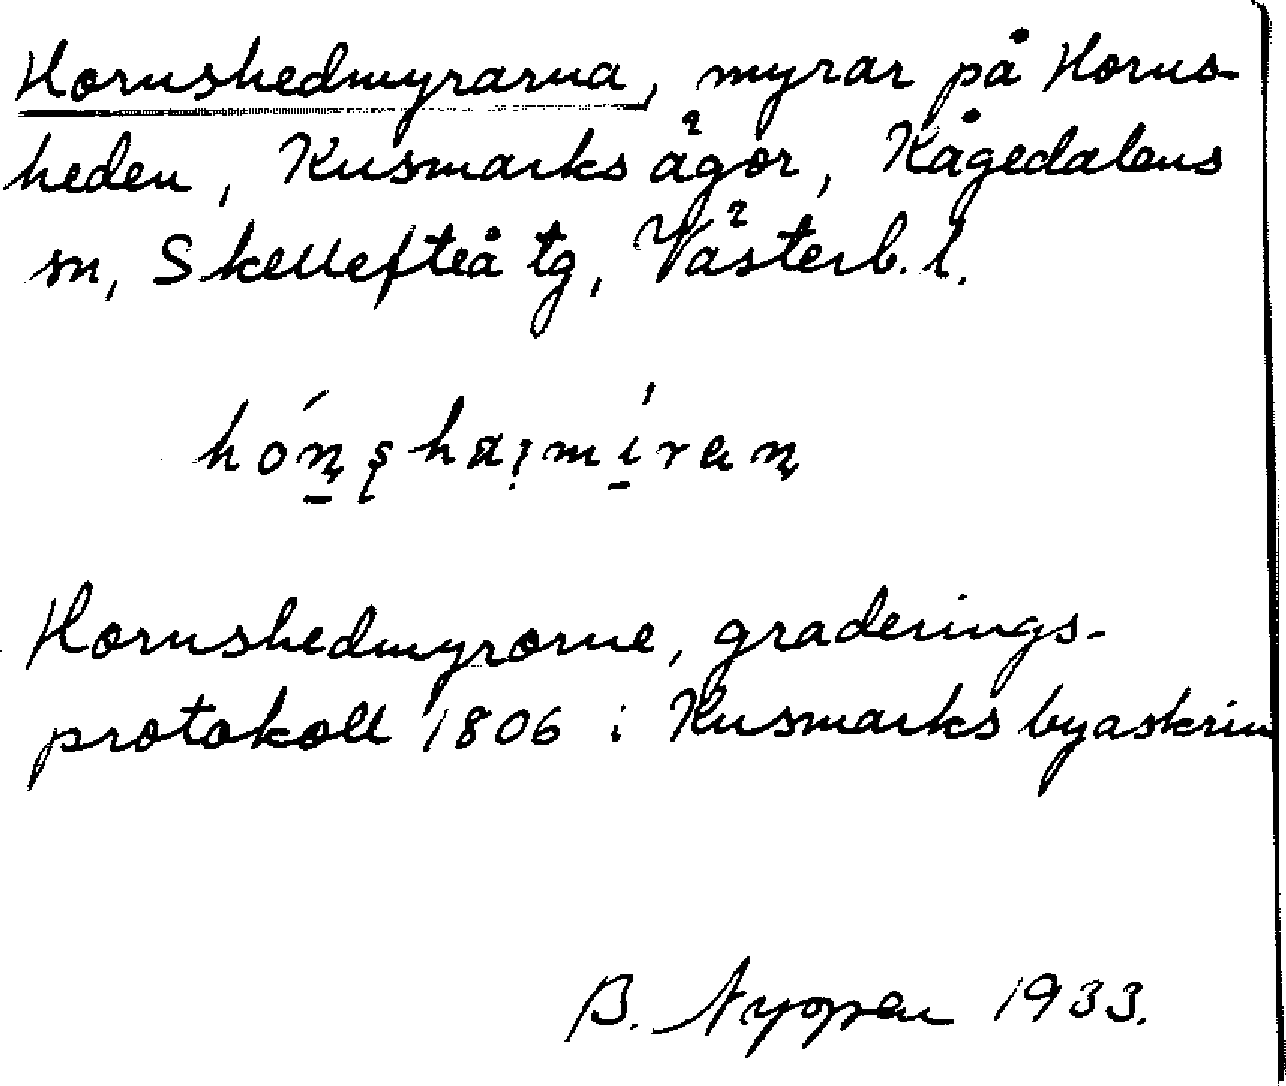 Hornshedmyrarna, myrar på Horns-
heden, Kusmarks ägor, Kågedalens
sn, Skellefteå tg, Västerb. l.
Hornshedmyrorne, graderings-
protokoll 1806 i Kusmarks byaskrin
B. Nyopen 1933.